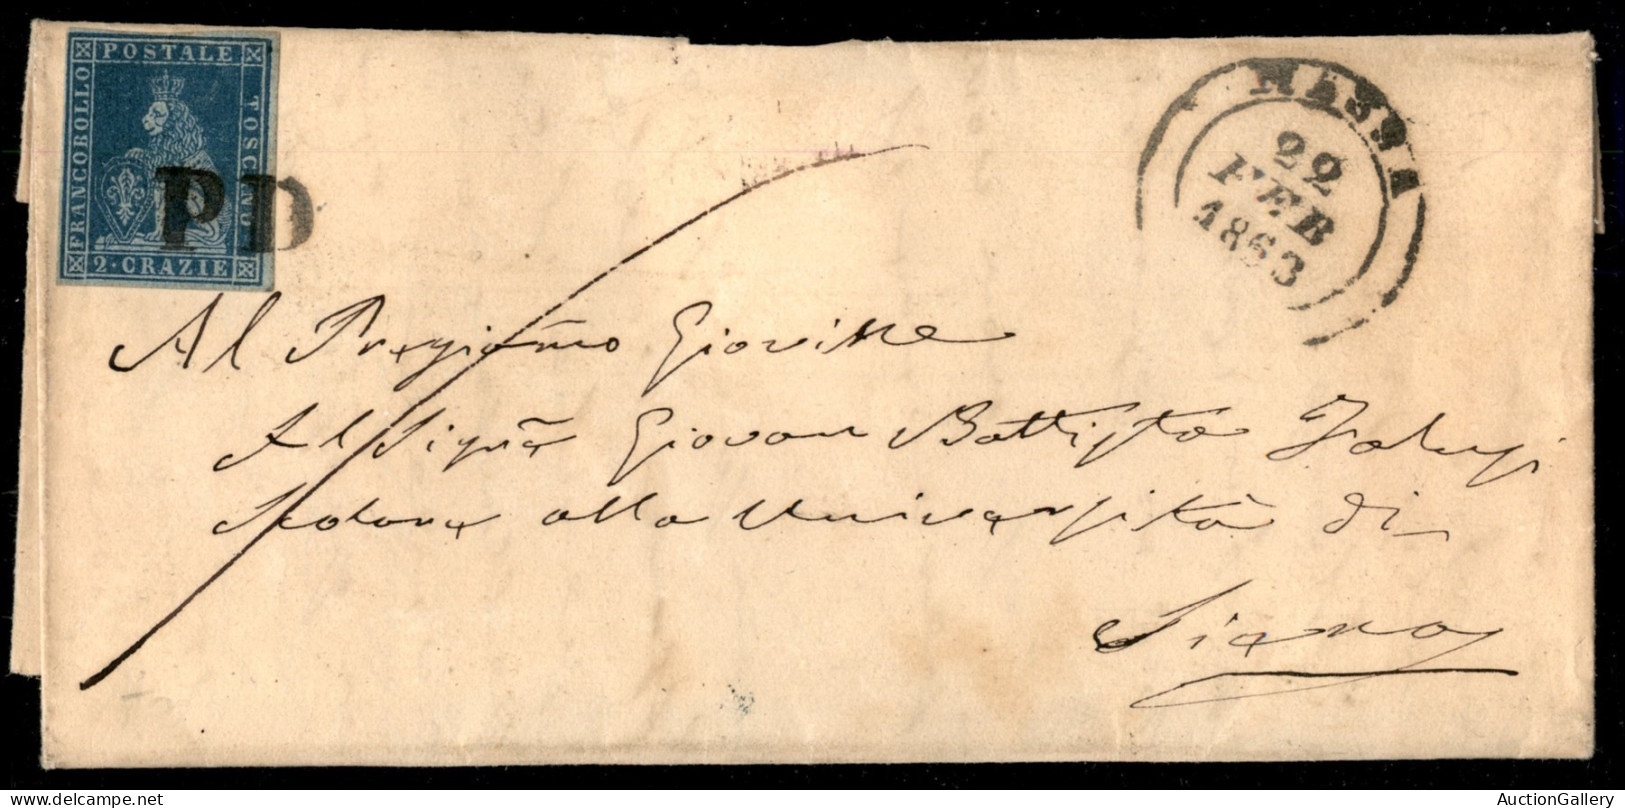 POSTALE
FRANCOBOLLO
TOSCANO
2·CRAZIE
PD
MASSA
22
FEB
1853
Al Pregiamo Giovine
Al Sigre Giovan Battista
Scolare alla Università di
Siena
AuctionGallery